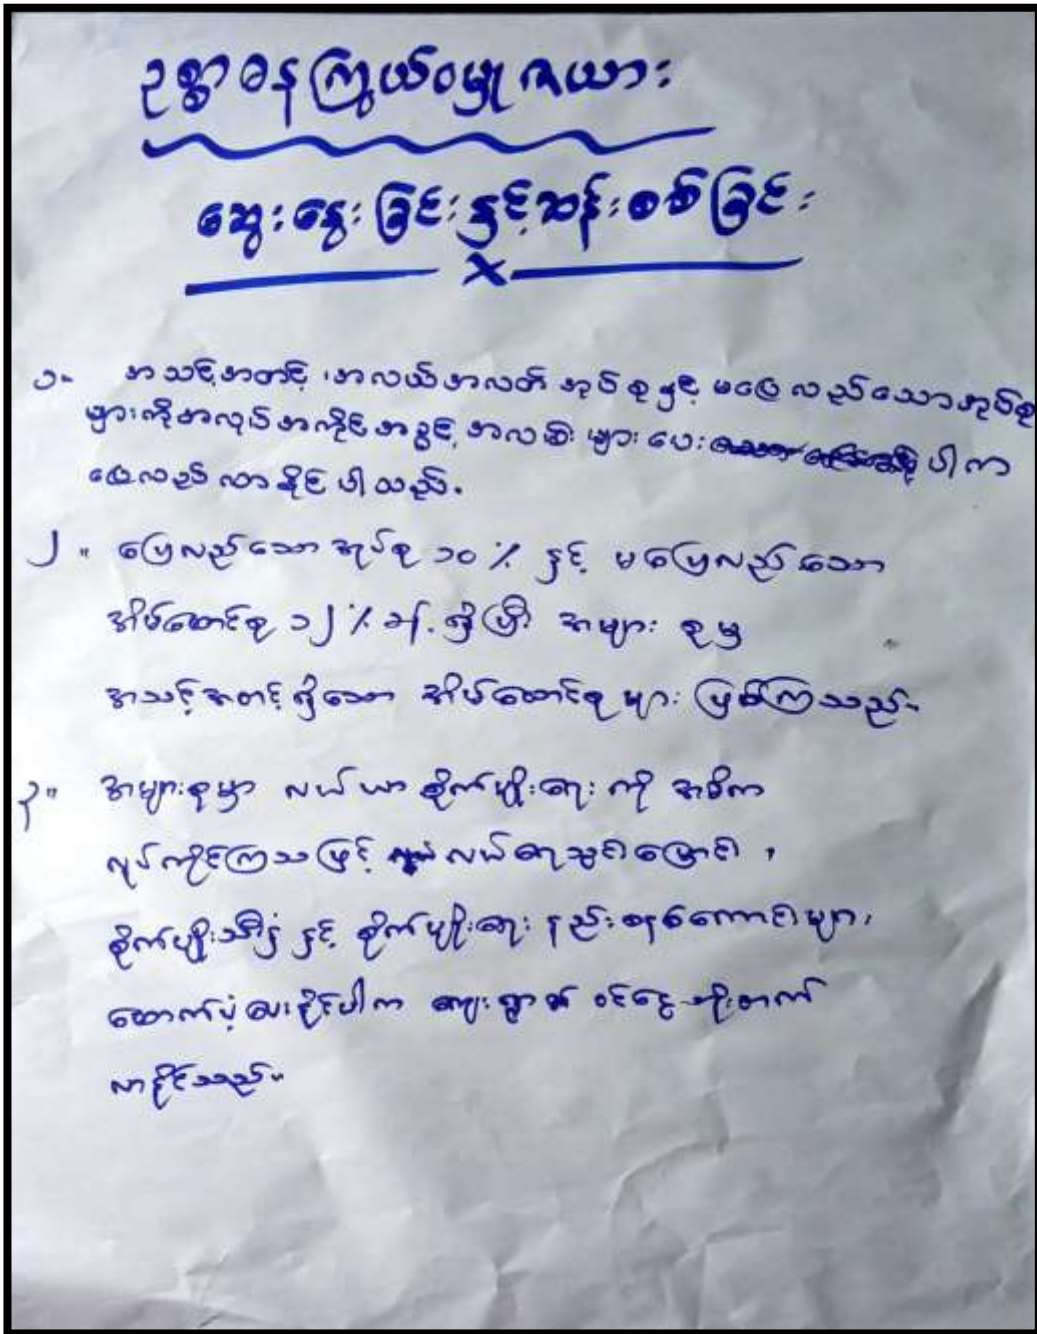 ဥစ္စာဓနကြွယ်ဝမှုဇယား
ဆွေးနွေးခြင်းနှင့်ဆန်းစစ်ခြင်း
၁။ အသင့်အတင့်၊ အလယ်အလတ် အုပ်စုနှင့် မပြေလည်သောအုပ်စု
များကိုအလုပ်အကိုင်အခွင့်အလမ်းများပေး ပါက
ပြေလည်လာနိုင်ပါသည်။
၂။ ပြေလည်သောအုပ်စု ၁၀% နှင့် မပြေလည်သော
အိမ်ထောင်စု ၁၂% ခန့်ရှိပြီး အများစုမှ
အသင့်အတင့်ရှိသော အိမ်ထောင်စုများ ဖြစ်ကြသည်။
၃။ အများစုမှာ လယ်ယာစိုက်ပျိုးရေးကို အဓိက
လုပ်ကိုင်ကြသဖြင့် လယ်ရေသွင်းမြောင်း၊
စိုက်ပျိုးသီးနှံ နှင့် စိုက်ပျိုးရေး နည်းစနစ်ကောင်းများ
ထောက်ပံ့ပေးနိုင်ပါက ကျေးရွာ၏ ဝင်ငွေတိုးတက်
လာနိုင်သည်။